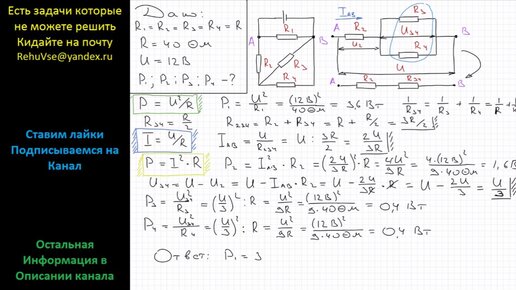 Есть задачи которые
не можете решить
Кидайте на почту
RehuVse@yandex.ru
Ставим лайки
Подписываемся на
Канал
Остальная
Информация в
Описании канала
Дано:
R₁ = R₂ = R₃ = R₄ = R
R = 40 Ом
U = 12 В
P₁; P₂; P₃; P₄ - ?
R₁
A B
R₂ R₃ R₄
I_AB R₃
A R₂ B
U₂ U₃₄
R₄
U
A R₂ R₃₄ B
P = U²/R P₁ = U²/R₁ = (12В)²/40Ом = 3,6 Вт 1/R₃₄ = 1/R₃ + 1/R₄ = 1/R +
R₃₄ = R/2 R₂₃₄ = R₂ + R₃₄ = R + R/2 = 3R/2
I = U/R I_AB = U/R₂₃₄ = U : 3R/2 = 2U/3R
P = I²·R P₂ = I²_AB · R₂ = (2U/3R)² · R = 4U²/9R = 4·(12В)²/9·40Ом = 1,6 В
U₃₄ = U - U₂ = U - I_AB · R₂ = U - 2U/3R · R = U - 2U/3 = U/3
P₃ = U₃₄²/R₃ = (U/3)² : R = U²/9R = (12В)²/9·40Ом = 0,4 Вт
P₄ = U₃₄²/R₄ = (U/3)² : R = U²/9R = (12В)²/9·40Ом = 0,4 Вт
Ответ: P₁ = 3